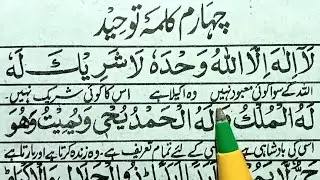 چہارم کلمۂ توحید
لَآ اِلٰهَ اِلَّا اللّٰهُ وَحْدَهٗ لَا شَرِيْكَ لَهٗ
اللہ کے سوا کوئی معبود نہیں وہ اکیلا ہے اس کا کوئی شریک نہیں
لَهُ الْمُلْكُ وَلَهُ الْحَمْدُ يُحْيٖ وَيُمِيْتُ وَهُوَ
اسی کی بادشاہی ہے اسی کے لئے تمام تعریف ہے۔ وہ زندہ کرتا ہے اور مارتا ہے